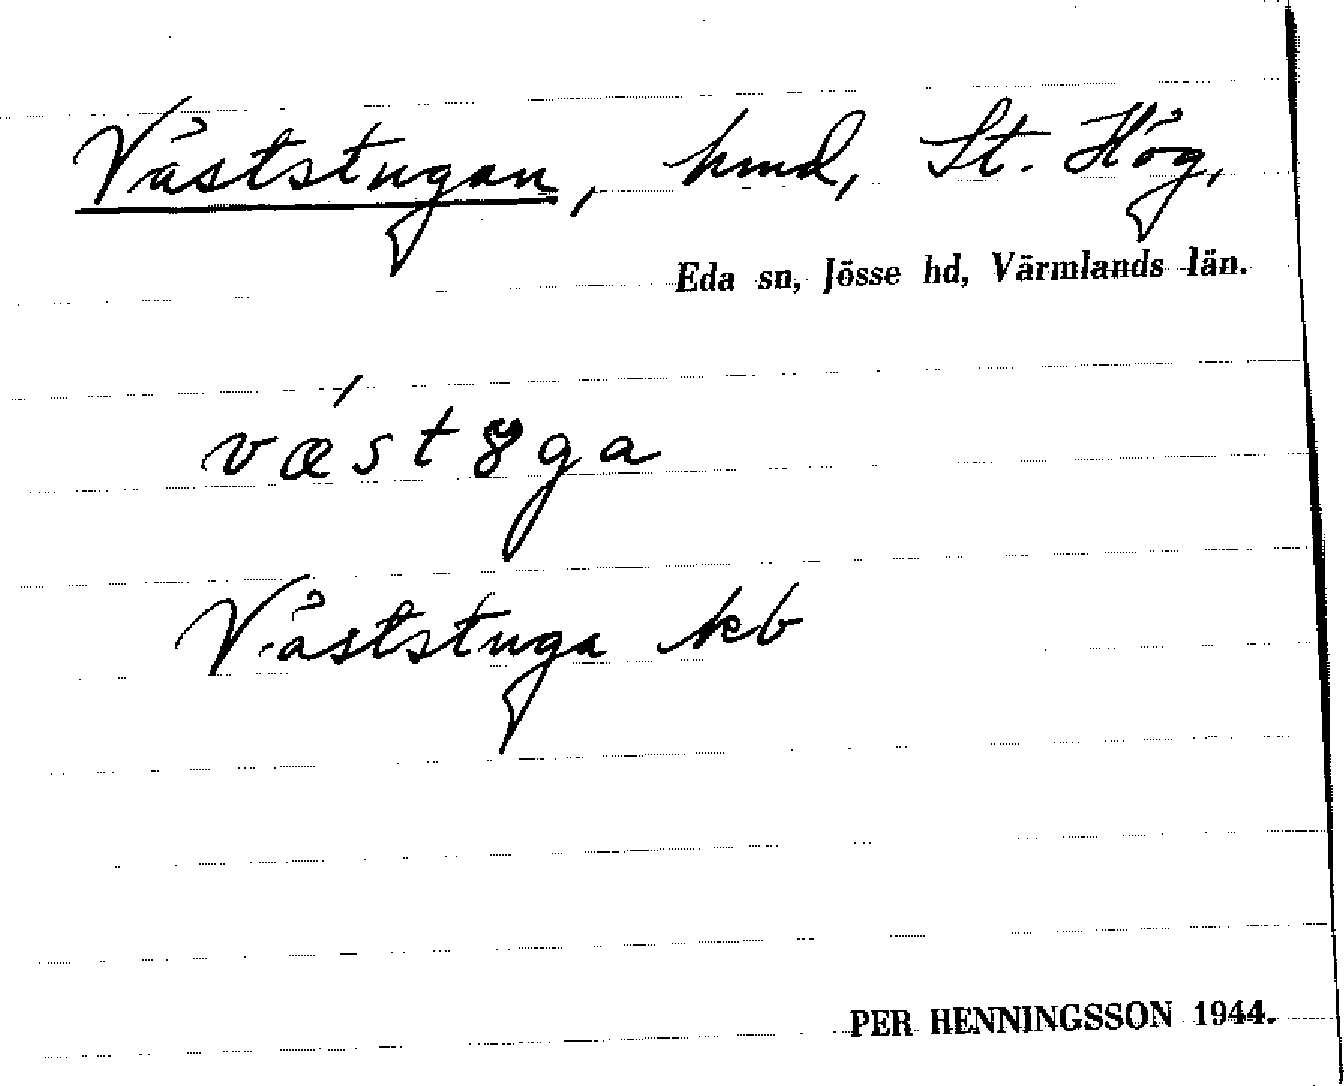 Väststugan, hmd, St. Hög,
Eda sn, Jösse hd, Värmlands län.
vǽstȣga
Väststuga kb
PER HENNINGSSON 1944.